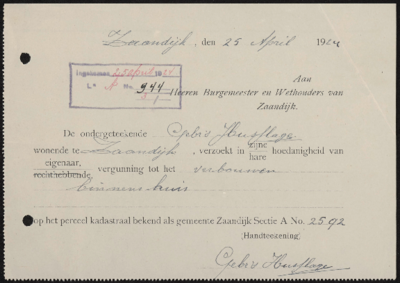 Zaandijk, den 25 April 1924
Ingekomen 25 April 1924
La A No. 944
Aan
Heeren Burgemeester en Wethouders van
Zaandijk.
De ondergeteekende Gebrs Huslage
wonende te Zaandijk, verzoekt in zijne hare hoedanigheid van
eigenaar, rechthebbende, vergunning tot het verbouwen
binnenshuis
op het perceel kadastraal bekend als gemeente Zaandijk Sectie A No. 2592
(Handteekening)
Gebrs Huslage